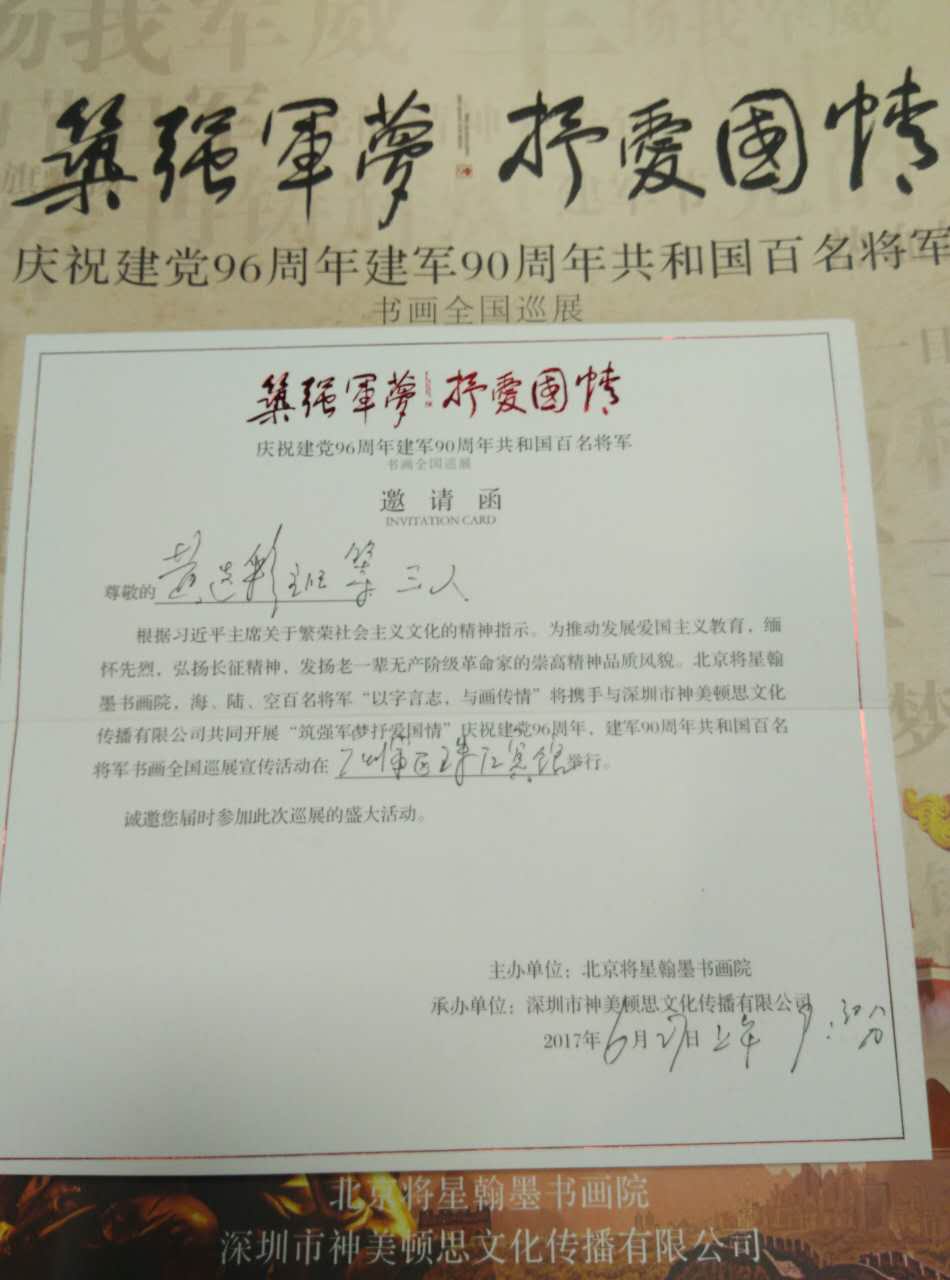 扬我军威
筑强軍夢 抒愛國情
庆祝建党96周年建军90周年共和国百名将军
书画全国巡展
筑强軍夢 抒愛國情
庆祝建党96周年建军90周年共和国百名将军
书画全国巡展
邀请函
INVITATION CARD
尊敬的 黄 彩 等 三人
根据习近平主席关于繁荣社会主义文化的精神指示。为推动发展爱国主义教育，缅
怀先烈，弘扬长征精神，发扬老一辈无产阶级革命家的崇高精神品质风貌。北京将星翰
墨书画院，海、陆、空百名将军“以字言志，与画传情”将携手与深圳市神美顿思文化
传播有限公司共同开展“筑强军梦抒爱国情”庆祝建党96周年，建军90周年共和国百名
将军书画全国巡展宣传活动在 广州军区珠江宾馆 举行。
诚邀您届时参加此次巡展的盛大活动。
主办单位：北京将星翰墨书画院
承办单位：深圳市神美顿思文化传播有限公司
2017年6月27日上午9:30分
北京将星翰墨书画院
深圳市神美顿思文化传播有限公司